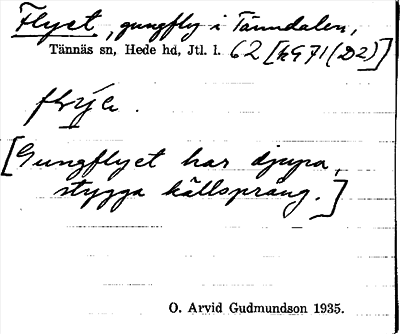 Flyet, gungfly i Tänndalen,
Tännäs sn, Hede hd, Jtl. l. 62 [h971(D2)]
[Gungflyet har djupa,
stygga källsprång.]
O. Arvid Gudmundson 1935.